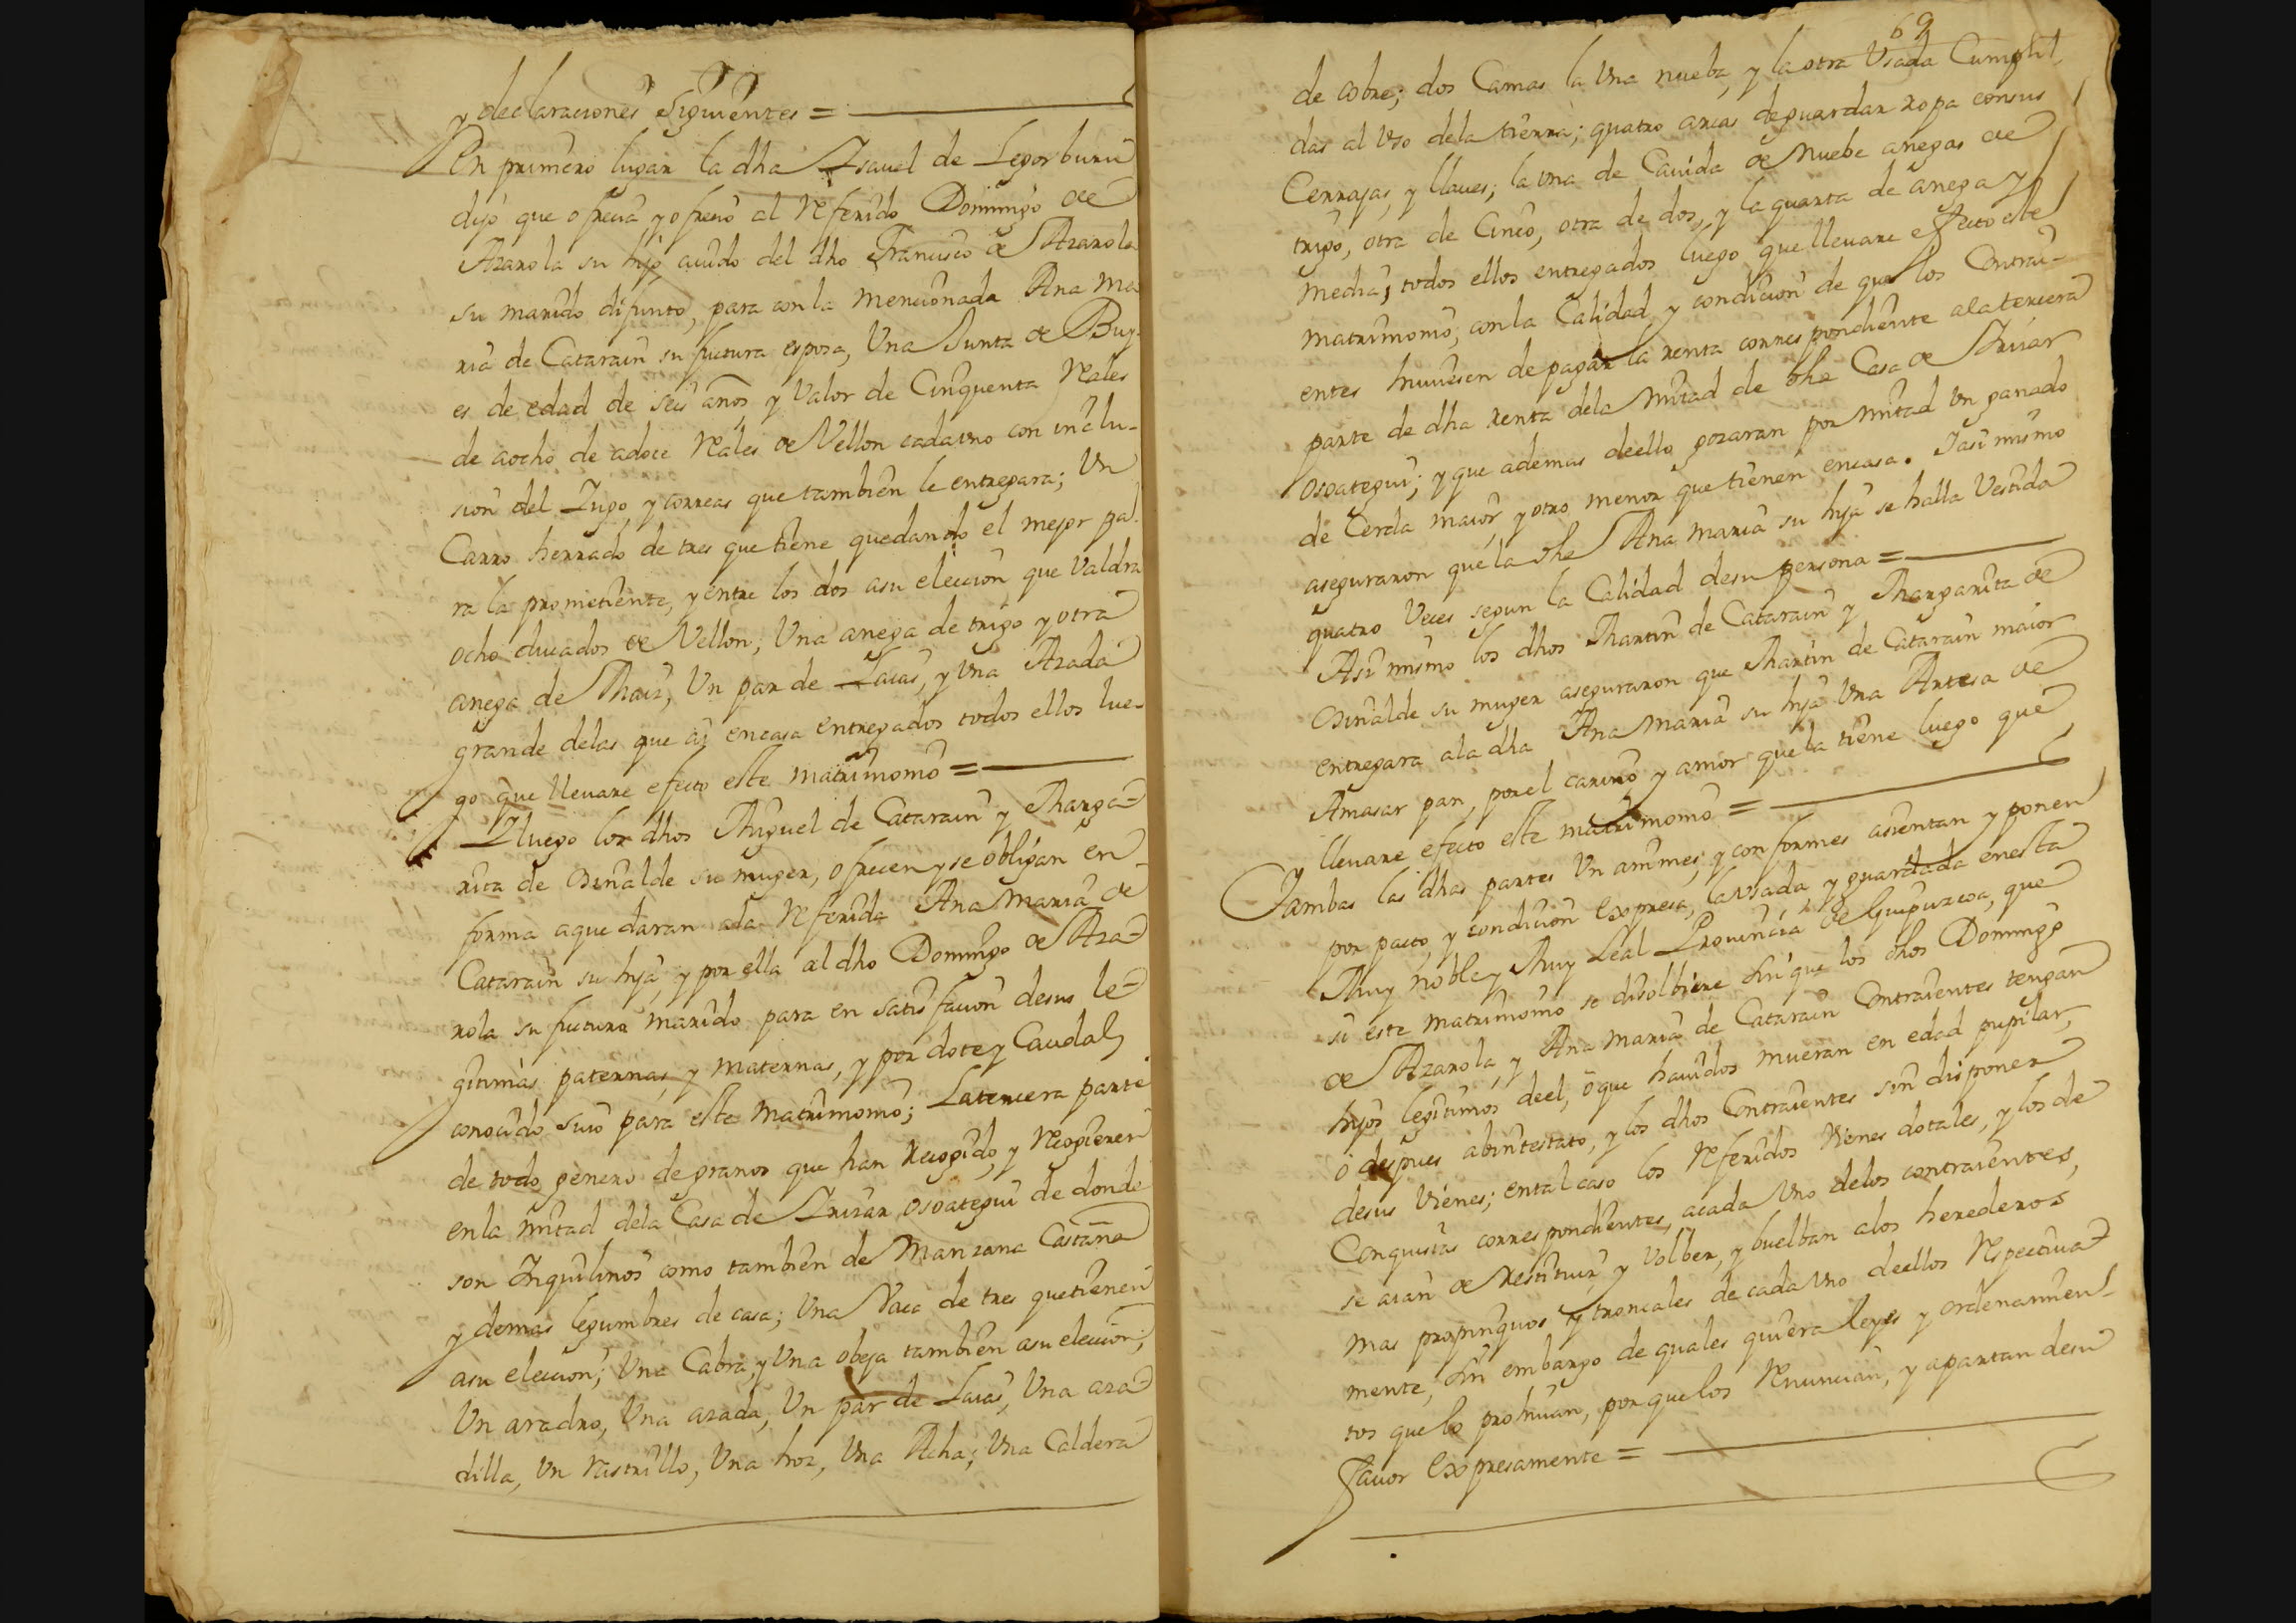 y declaraciones siguientes =
En primero lugar la dha Isauel de Legorburu
dijo que ofrecia, y ofrecio al Referido Domingo de
Azarola su hijo auido del dho Francisco de Azarola
su marido difunto, para con la mencionada Ana Ma
ria de Catarain su futura esposa, Una Junta de Buy-
es de edad de seis años, y Valor de Cinquenta Reales
de aocho de adoce Reales de Vellon cadauno con inclu-
sion del Iugo, y correas que tambien le entregara; Un
Carro herrado de tres que tiene quedando el mejor pa-
ra la prometiente, y entre los dos asu eleccion que Valdra
ocho ducados de Vellon; Una anega de trigo y otra
anega de Maiz, Un par de Laias, y Una Azada
grande delas que ai encasa entregados todos ellos lue-
go que lleuare efecto este matrimonio =
I luego los dhos Miguel de Catarain y Marga-
rita de Osinalde su muger, ofrecen y se obligan en
forma aque daran ala Referida Ana Maria de
Catarain su hija, y por ella al dho Domingo de Aza-
rola su futuro marido para en satisfacion desus le-
gitimas paternas, y maternas, y por dote y Caudal
conocido suio para este matrimonio; La tercera parte
de todo genero de granos que han Recogido, y Recogieren
enla mitad dela Casa de Irizar Osoategui de donde
son Inquilinos como tambien de Manzana Castaña
y demas legumbres de casa; Una Vaca de tres quetienen
asu eleccion; Una Cabra, y Una obeja tambien asu eleccion;
Un aradro, Una azada, Un par de Laias, Una aza-
dilla, Un Rastrillo, Una hoz, Una Acha; Una Caldera
69
de cobre; dos Camas la Una nueba, y la otra Usada Cumpli-
das al Uso dela tierra; quatro arcas deguardar ropa consus
Cerrajas, y llaues; la Una de Cauida de Nuebe anegas de
trigo, otra de Cinco, otra de dos, y la quarta de anega y
media; todos ellos entregados luego que lleuare efecto este
matrimonio, con la Calidad y condicion de que los Contrai-
entes huuiesen depagar la renta correspondiente alatercera
parte de dha renta dela Mitad de dha Casa de Irizar
Osoategui; y que ademas deello gozaran por Mitad Un ganado
de Cerda maior, y otro menor que tienen encasa. Iasi mismo
aseguraron que la dha Ana Maria su hija se halla Vestida
quatro Veces segun la Calidad desu persona =
Asi mismo los dhos Martin de Catarain y Margarita de
Osinalde su muger aseguraron que Martin de Catarain maior
entregara ala dha Ana Maria su hija Una Artesa de
Amasar pan, porel cariño, y amor quela tiene luego que
lleuare efecto este matrimonio =
Iambas las dhas partes Unanimes, y conformes asientan y ponen
por pacto, y condicion Expresa, la Usada y guardada enesta
Muy Noble y Muy Leal Prouincia de Guipuzcoa, que
si este matrimonio se disolbiere sin que los dhos Domingo
de Azarola, y Ana Maria de Catarain Contraientes tengan
hijos legitimos deel, ò que hauidos mueran en edad pupilar,
ò despues abintestato, y los dhos Contraientes sin disponer
desus Vienes; ental caso los Referidos Vienes dotales, y los de
Conquistas correspondientes, acada Uno delos contraientes,
se aian de Restituir, y Volber, y buelban alos herederos
mas propinquos y troncales de cada Uno deellos Respectiua-
mente, sin embargo de quales quiera leyes y ordenamien-
tos que lo prohiuan, por que los Renuncian, y apartan desu
fauor Expresamente =